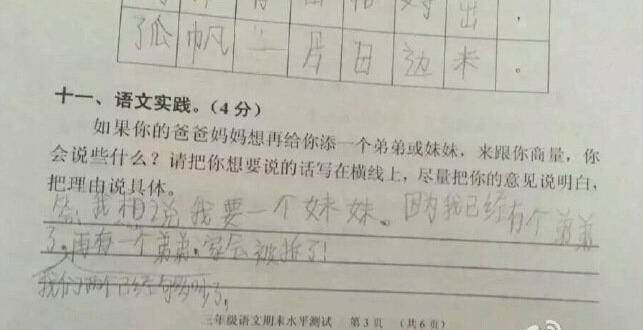 出，
了孤帆一片日边来。
十一、语文实践。（4分）
如果你的爸爸妈妈想再给你添一个弟弟或妹妹，来跟你商量，你
会说些什么？请把你想要说的话写在横线上，尽量把你的意见说明白，
把理由说具体。
答：我想说我要一个妹妹。因为我已经有个弟弟
了。再有一个弟弟，家会被拆了！
我们两个已经够多了，
三年级语文期末水平测试 第3页 （共6页）